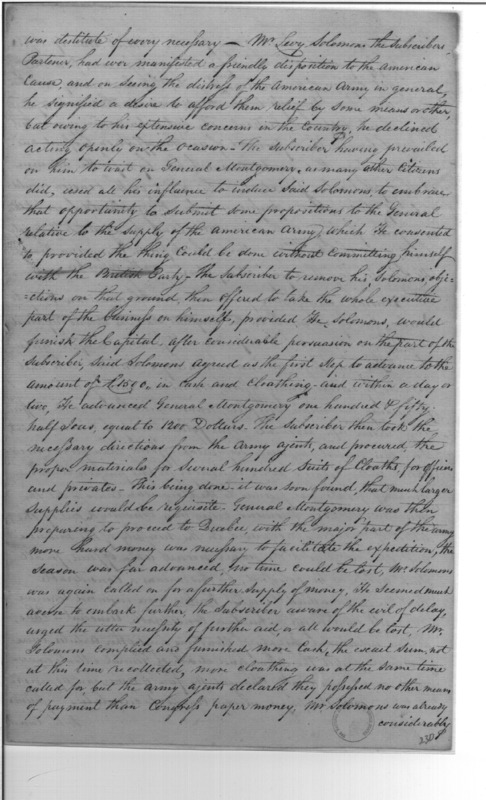 was destitute of every necessary — Mr. Levy Solomons the Subscribers
Partener, had ever manifested a friendly disposition to the American
Cause, and on seeing the distress of the American Army in general,
he signified a desire to afford them relief by some means or other,
but owing to his extensive concerns in the Country, he declined
acting openly on the Ocasion — The Subscriber having prevailed
on him to wait on General Montgomery, as many other Citizens
did, used all his influence to induce Said Solomons, to embrace
that opportunity to submit some propositions to the General
relative to the supply of the American Army, which He consented
to, provided the thing could be done without committing himself
with the British Party — the Subscriber to remove his Solomons obje-
-ctions on that ground, then offered to take the whole executive
part of the business on himself, provided He Solomons, would
furnish the Capital, after considerable persuasion on the part of the
Subscriber, Said Solomons agreed as the first Step to advance to the
amount of £1500, in cash and Cloathing and within a day or
two, He advanced General Montgomery one hundred & fifty
half Joes, equal to 1200 Dollars. The Subscriber then took the
necessary directions from the Army agents, and procured, the
proper materials for several hundred Suits of Cloaths, for officers
and privates — This being done it was soon found, that much larger
Supplies would be requisite. General Montgomery was then
preparing to proceed to Quebec, with the major part of the army
more hard money was necessary to facilitate the expedition, the
Season was far advanced, no time could be lost, Mr. Solomons
was again called on for a further supply of money, He Seemed much
averse to embark further, the Subscriber aware of the evil of delay,
urged the utter necessity of further aid, or all would be lost, Mr.
Solomons complied and furnished more Cash, the exact sum, not
at this time recollected, more cloathing was at the Same time
called for, but the army agents declared they possessed no other means
of payment than Congress paper money, Mr Solomons was already
considerably